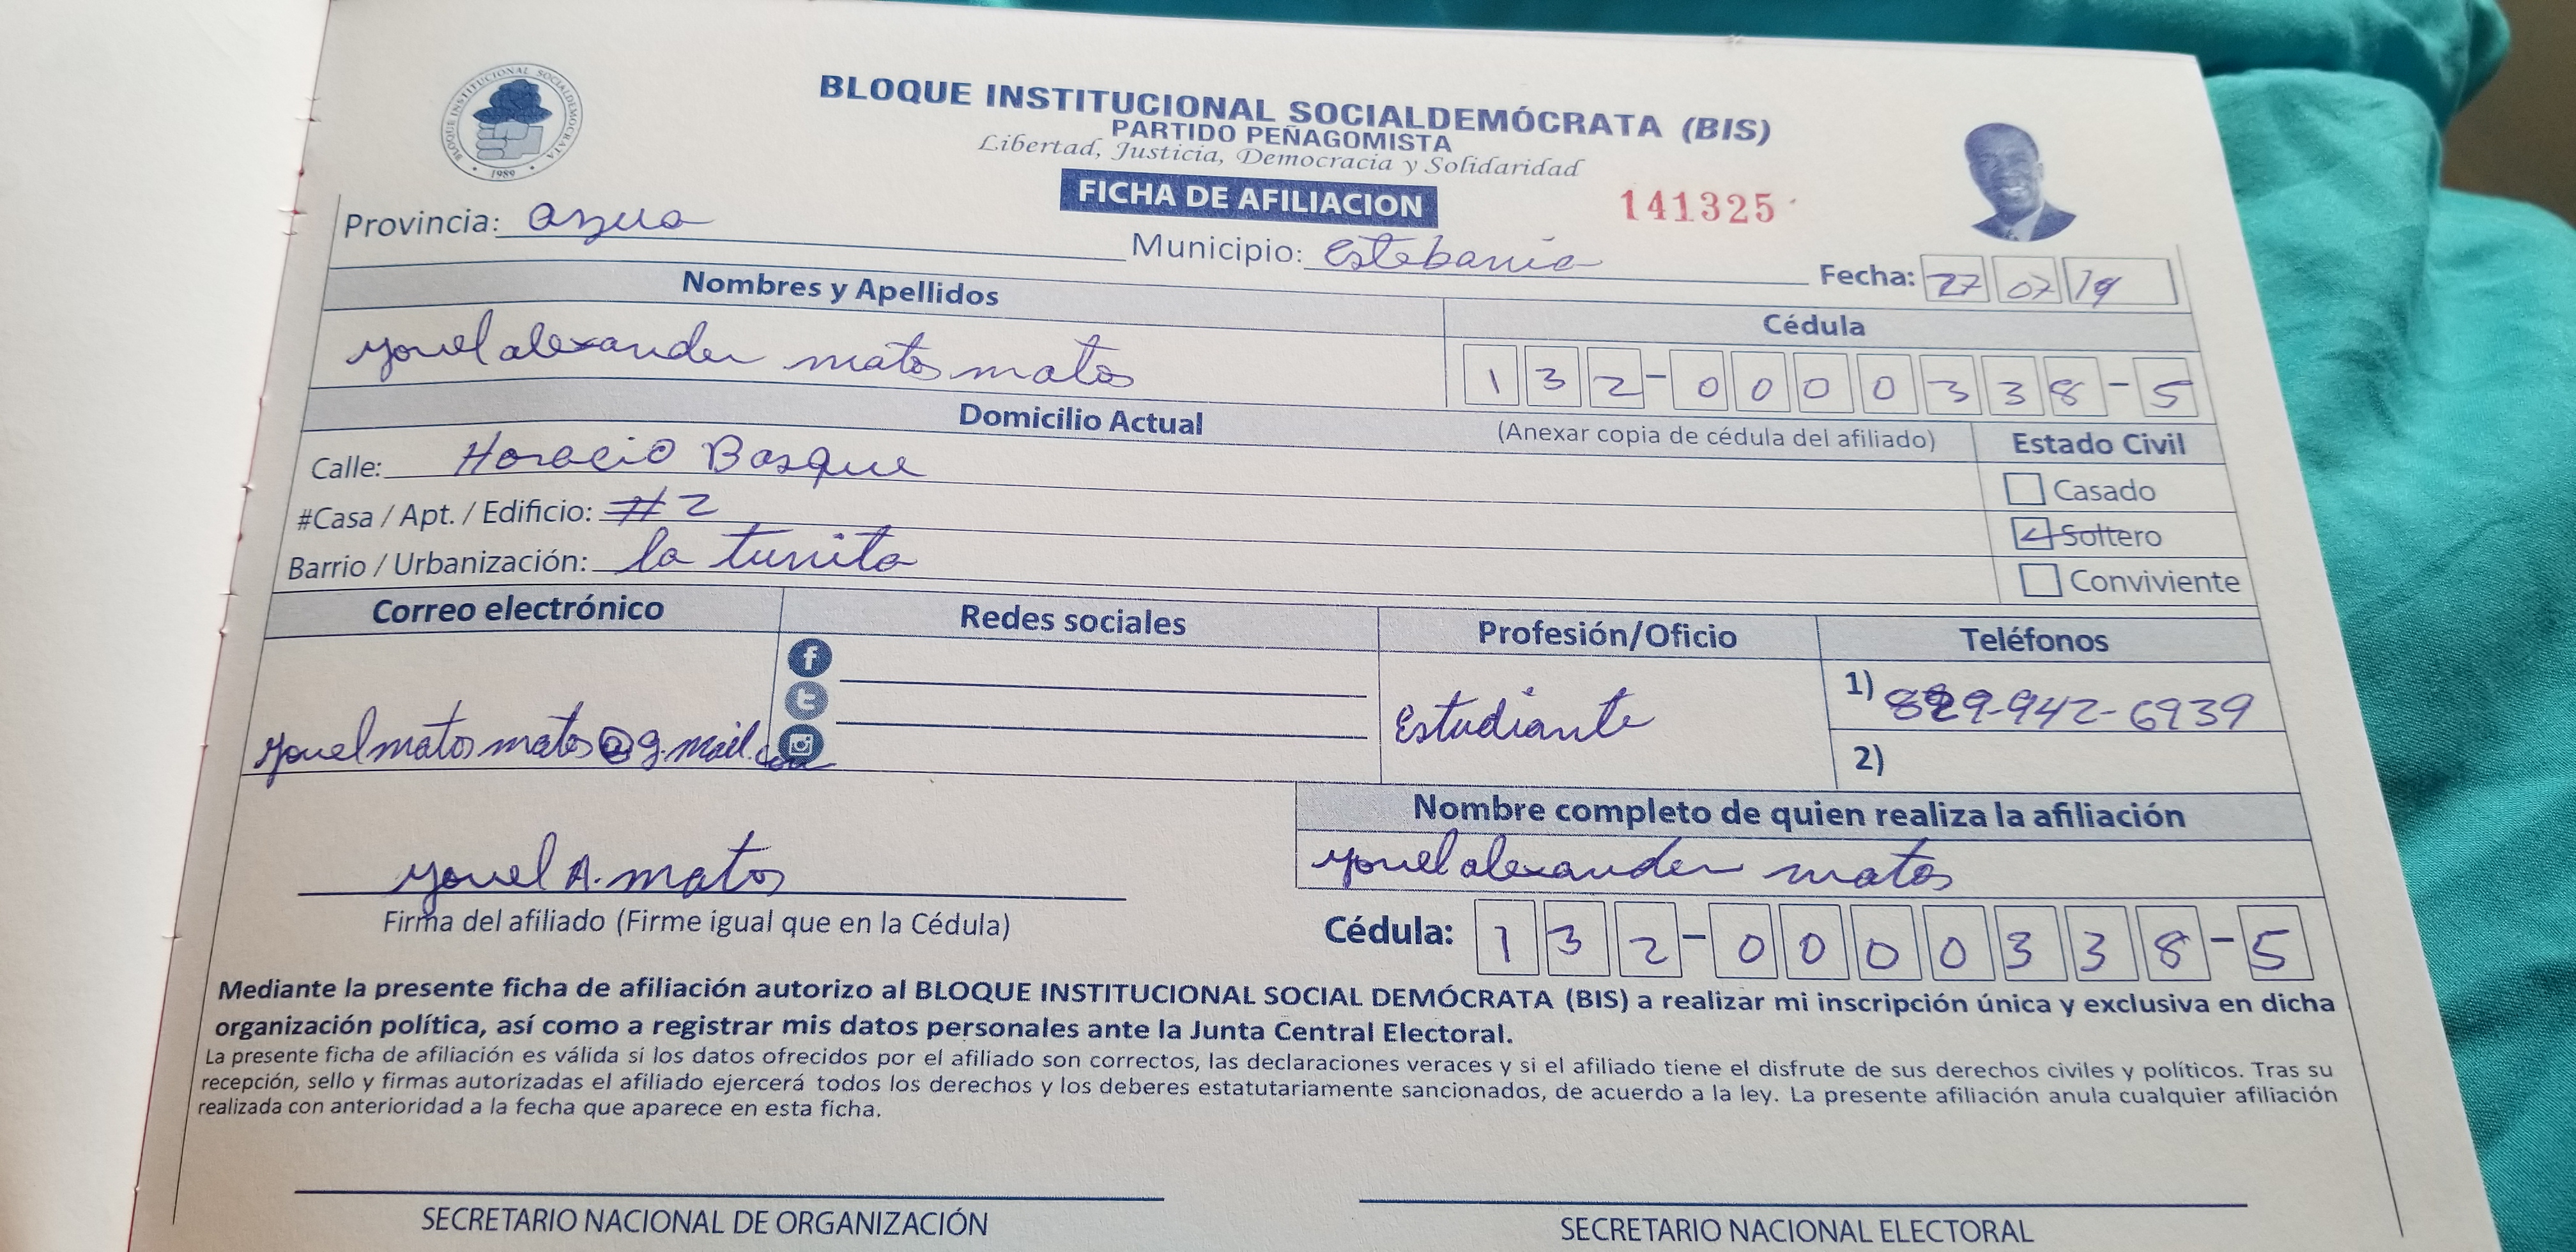 BLOQUE INSTITUCIONAL SOCIALDEMÓCRATA (BIS)
PARTIDO PEÑAGOMISTA
Libertad, Justicia, Democracia y Solidaridad
BLOQUE INSTITUCIONAL SOCIALDEMOCRATA
• 1989 •
FICHA DE AFILIACION 141325
Provincia: azua Municipio: Estebania Fecha: 27 07 19
Nombres y Apellidos Cédula
yonel alexander matos matos 132-0000338-5
Domicilio Actual (Anexar copia de cédula del afiliado) Estado Civil
Calle: Horacio Basque
Casado
#Casa / Apt. / Edificio: #2
Soltero
Barrio / Urbanización: la tunita
Conviviente
Correo electrónico Redes sociales Profesión/Oficio Teléfonos
yonelmatosmatos@g.mail.com Estudiante 1) 829-942-6939
2)
Nombre completo de quien realiza la afiliación
yonel A. matos yonel alexander matos
Firma del afiliado (Firme igual que en la Cédula) Cédula: 132-0000338-5
Mediante la presente ficha de afiliación autorizo al BLOQUE INSTITUCIONAL SOCIAL DEMÓCRATA (BIS) a realizar mi inscripción única y exclusiva en dicha
organización política, así como a registrar mis datos personales ante la Junta Central Electoral.
La presente ficha de afiliación es válida si los datos ofrecidos por el afiliado son correctos, las declaraciones veraces y si el afiliado tiene el disfrute de sus derechos civiles y políticos. Tras su
recepción, sello y firmas autorizadas el afiliado ejercerá todos los derechos y los deberes estatutariamente sancionados, de acuerdo a la ley. La presente afiliación anula cualquier afiliación
realizada con anterioridad a la fecha que aparece en esta ficha.
SECRETARIO NACIONAL DE ORGANIZACIÓN SECRETARIO NACIONAL ELECTORAL